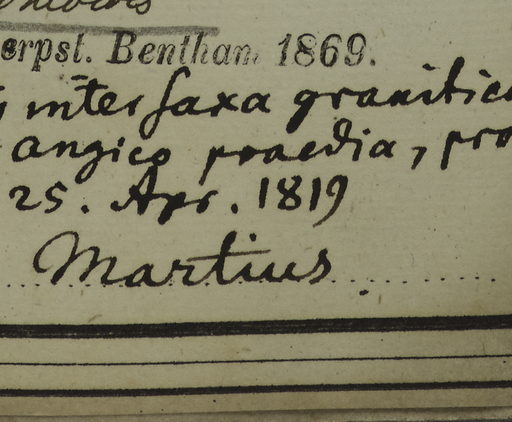 erpst. Bentham 1869.
inter saxa granitica
angico praedia, pro
25. Apr. 1819
Martius